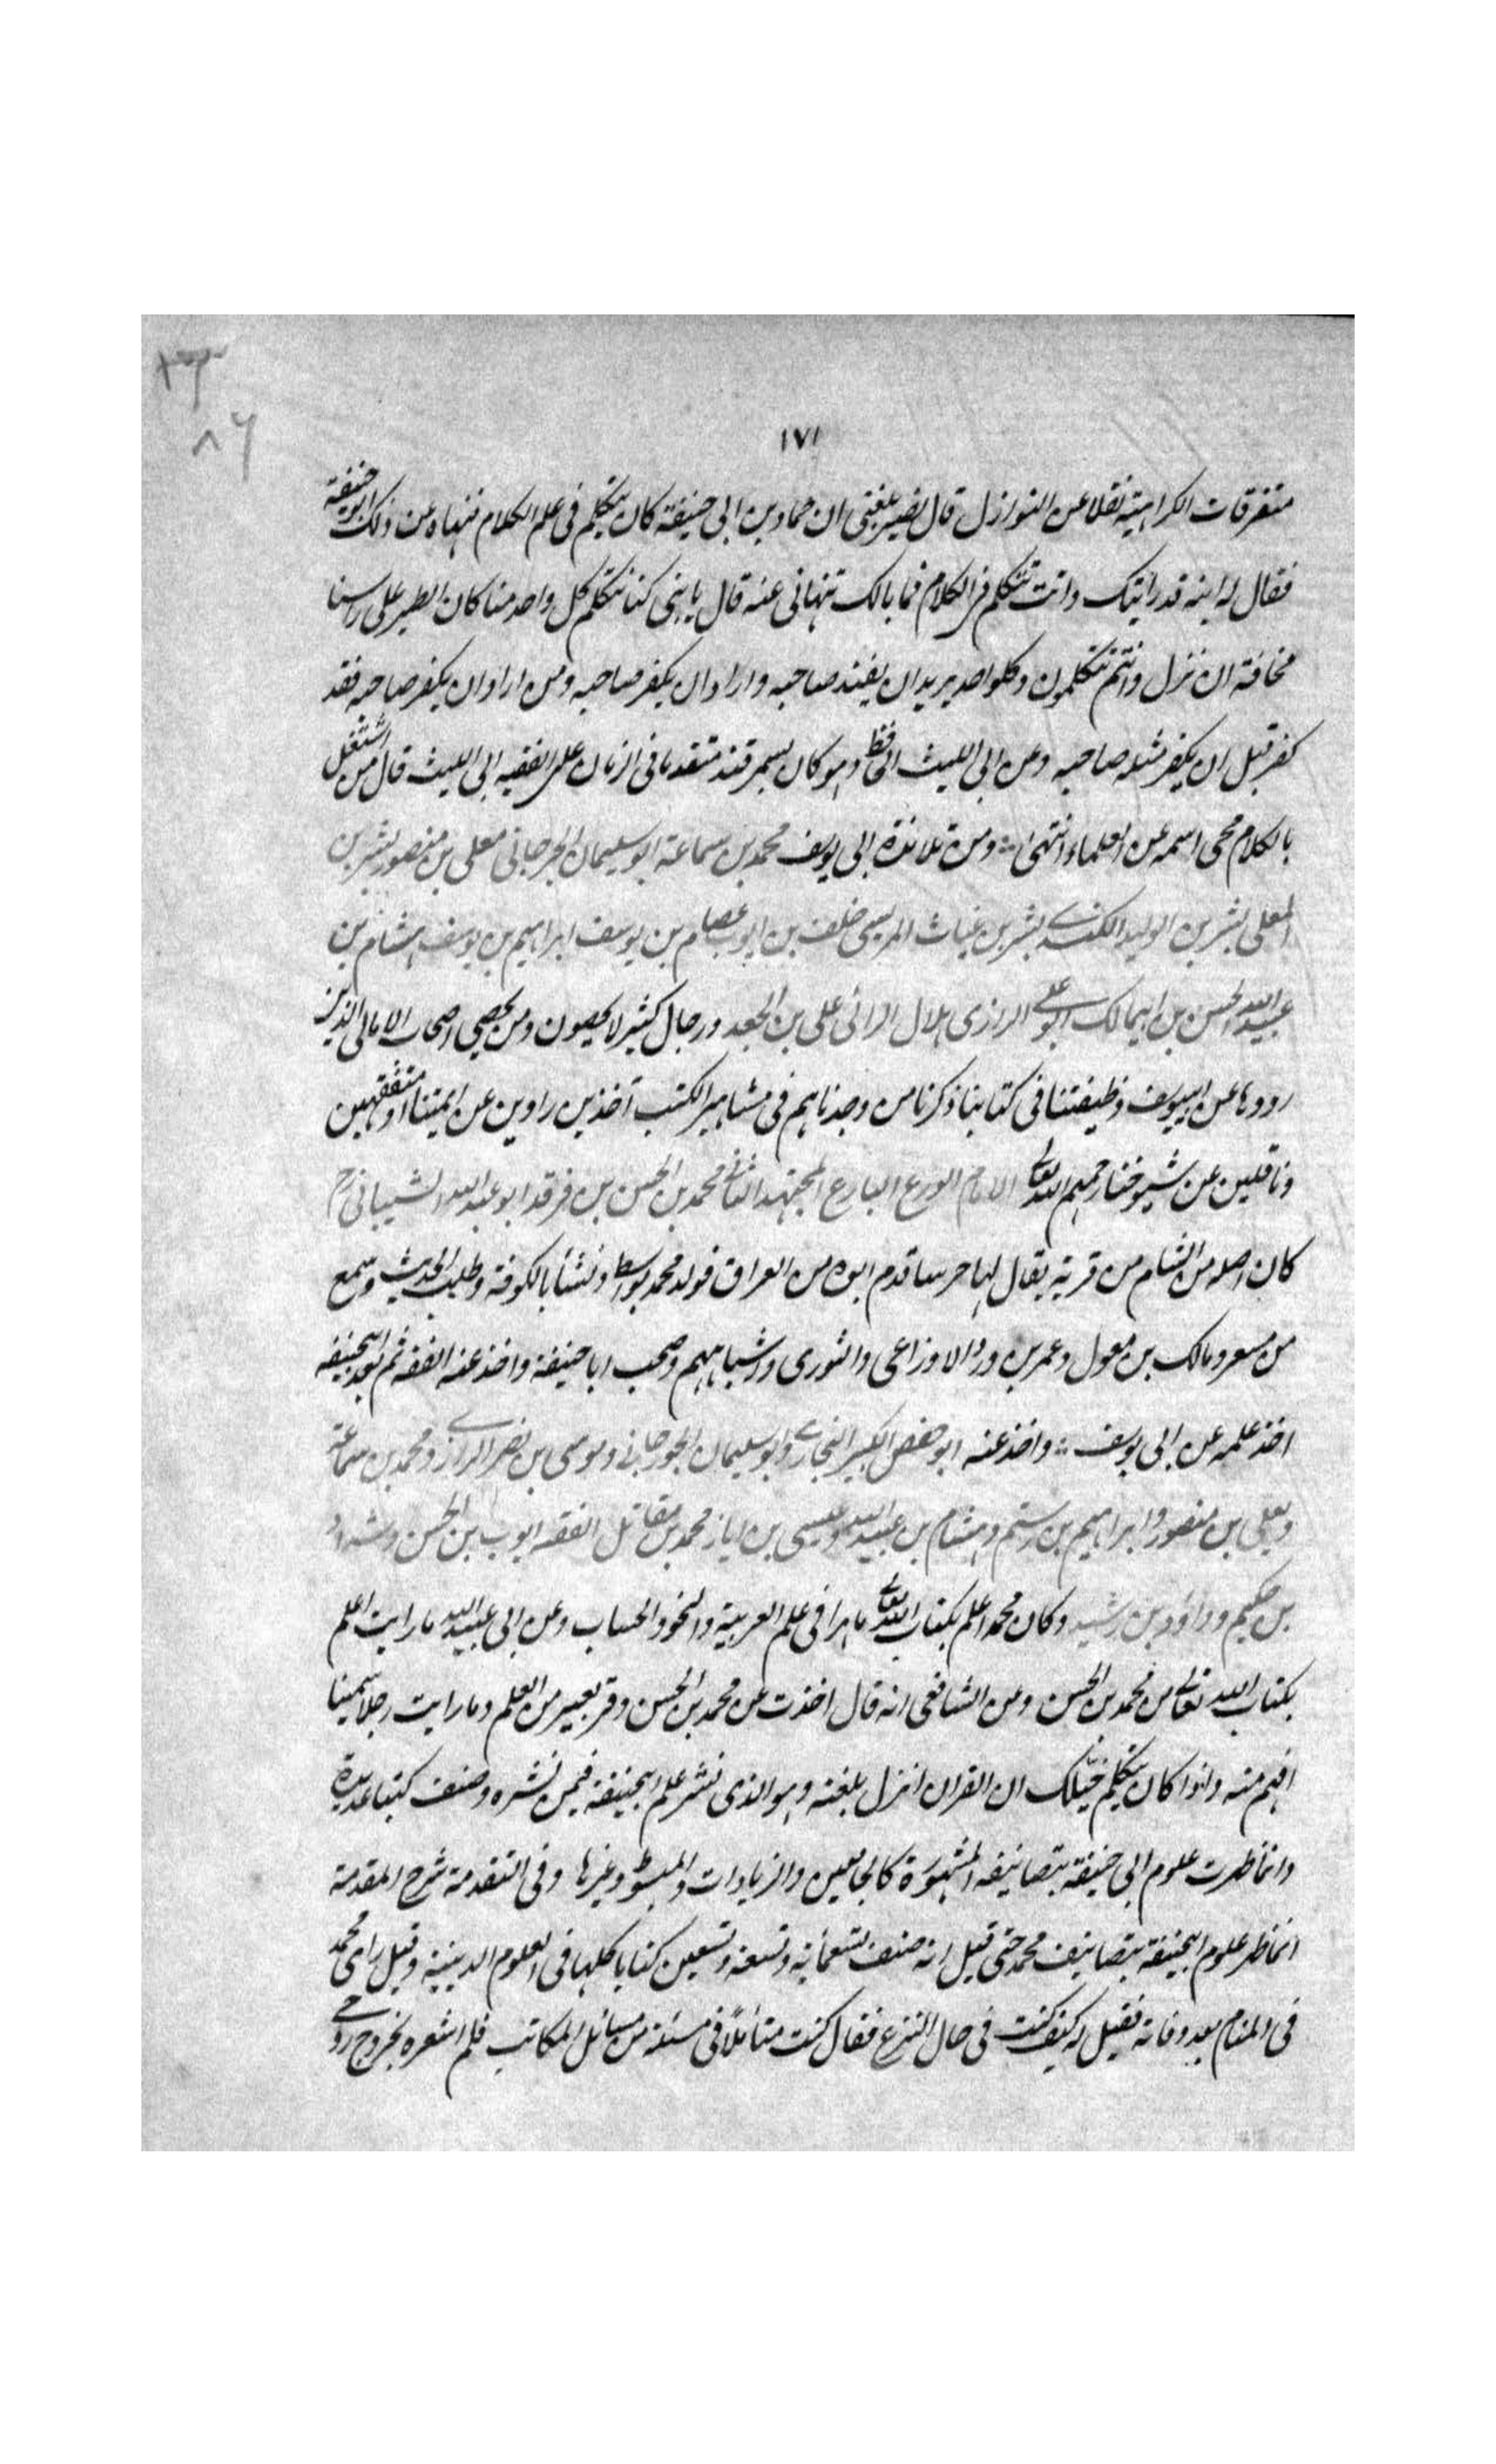 ١٧١
متفرقات الكراهية نقلا عن النوازل قال نصير بلغنى ان حماد بن ابى حنيفة كان يتكلم فى علم الكلام فنهاه عن ذلك ابو حنيفة
فقال له ابنه قد رأيتك وانت تتكلم فى الكلام فما بالك تنهانى عنه قال يا بنى كنا نتكلم كل واحد منا كان الطير على راسنا
مخافة ان نزل وانتم تتكلمون وكلواحد يريد ان يفند صاحبه واراد ان يكفر صاحبه ومن اراد ان يكفر صاحبه فقد
كفر قبل ان يكفر مثله صاحبه وعن ابى الليث الحافظ وهو كان بسمرقند متقدما فى الزمان على الفقيه ابى الليث قال من اشتغل
بالكلام محى اسمه عن العلماء انتهى ومن تلامذة ابى يوسف محمد بن سماعة ابو سليمان الجرجانى معلى بن منصور بشر بن
المعلى بشر بن الوليد الكندى بشر بن غياث المريسى خلف بن ايوب عصام بن يوسف ابراهيم بن يوسف هشام بن
عبيد الله الحسن بن ابيمالك ابو على الرازى هلال الرائى على بن الجعد ورجال كثير لا يحصون ومن يحصى اصحاب الامالى الذين
رووها عن ابييوسف وظيفتنا فى كتابنا ذكرنا من وجدناهم فى مشاهير الكتب آخذين راوين عن ائمتنا او متفقهين
وناقلين عن شيوخنا رحمهم الله تعالى الامام الورع البارع المجتهد الثانى محمد بن الحسن بن فرقد ابو عبد الله الشيبانى رح
كان اصله من الشام من قرية يقال لها حرسا قدم ابوه من العراق فولد محمد بواسط ونشأ بالكوفة وطلب الحديث وسمع
من مسعر ومالك بن معول وعمر بن در والاوزاعى والثورى واشباههم وصحب ابا حنيفة واخذ عنه الفقه ثم بعد ابيحنيفه
اخذ علمه عن ابى يوسف واخذ عنه ابو حفص الكبير البخارى وابو سليمان الجورجانى وموسى بن نصر الرازى ومحمد بن سماعة
ومعلى بن منصور وابراهيم بن رستم وهشام بن عبيد الله وعيسى بن ابان ومحمد بن مقاتل الفقه ايوب بن الحسن وشداد
بن حكيم وداؤد بن رشيد وكان محمد اعلم بكتاب الله تعالى ماهرا فى علم العربية والنحو والحساب وعن ابى عبيد الله ما رايت اعلم
بكتاب الله تعالى من محمد بن الحسن وعن الشافعى انه قال اخذت عن محمد بن الحسن وقر بعير من العلم وما رايت رجلا سمينا
افهم منه واذا كان يتكلم خيّلك ان القران انزل بلغته وهو الذى نشر علم ابيحنيفة فيمن نشره وصنف كتبا عديدة
وانما ظهرت علوم ابى حنيفة بتصانيفه المشهورة كالجامعين والزيادات والمبسوط وغيرها وفى التقدمة شرح المقدمة
انما ظهر علوم ابيحنيفة بتصانيف محمد حتى قيل انه صنف تسعمائة وتسعة وتسعين كتابا كلها فى العلوم الدينية وقيل رائ محمد
فى المنام بعد وفاته فقيل له كيف كنت فى حال النزع فقال كنت متأملًا فى مسئلة من مسائل المكاتب فلم اشعره بخروج روحى